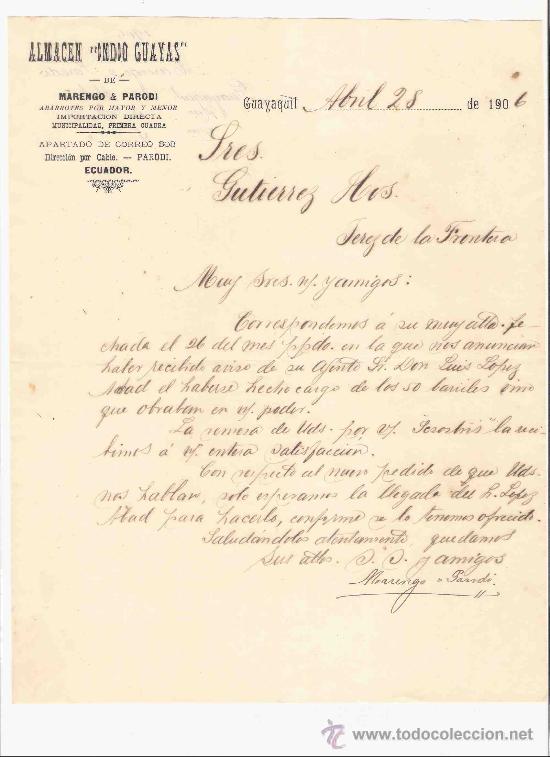 ALMACEN "INDIO GUAYAS"
— DE —
MARENGO & PARODI
ABARROTES POR MAYOR Y MENOR
IMPORTACION DIRECTA
MUNICIPALIDAD, PRIMERA CUADRA
APARTADO DE CORREO
Dirección por Cable. — PARODI.
ECUADOR.
Guayaquil Abril 28 de 1906
Sres.
Gutierrez Hos.
Jerez de la Frontera
Muy Sres. n/. y amigos:
Correspondemos á su muy atta. fe-
chada el 26 del mes ppdo. en la que nos anuncian
haber recibido aviso de su Agente Sr. Don Luis Lopez
Abad el haberse hecho cargo de los 50 bariles vino
que obraban en n/. poder.
La remesa de Uds. por v/. la reci-
bimos á n/. entera satisfacción.
Con respecto al nuevo pedido de que Uds.
nos hablan, solo esperamos la llegada del Sr. Lopez
Abad para hacerlo, conforme se lo tenemos ofrecido.
Saludándolos atentamente quedamos
Sus attos. S. S. y amigos
Marengo & Parodi
www.todocoleccion.net